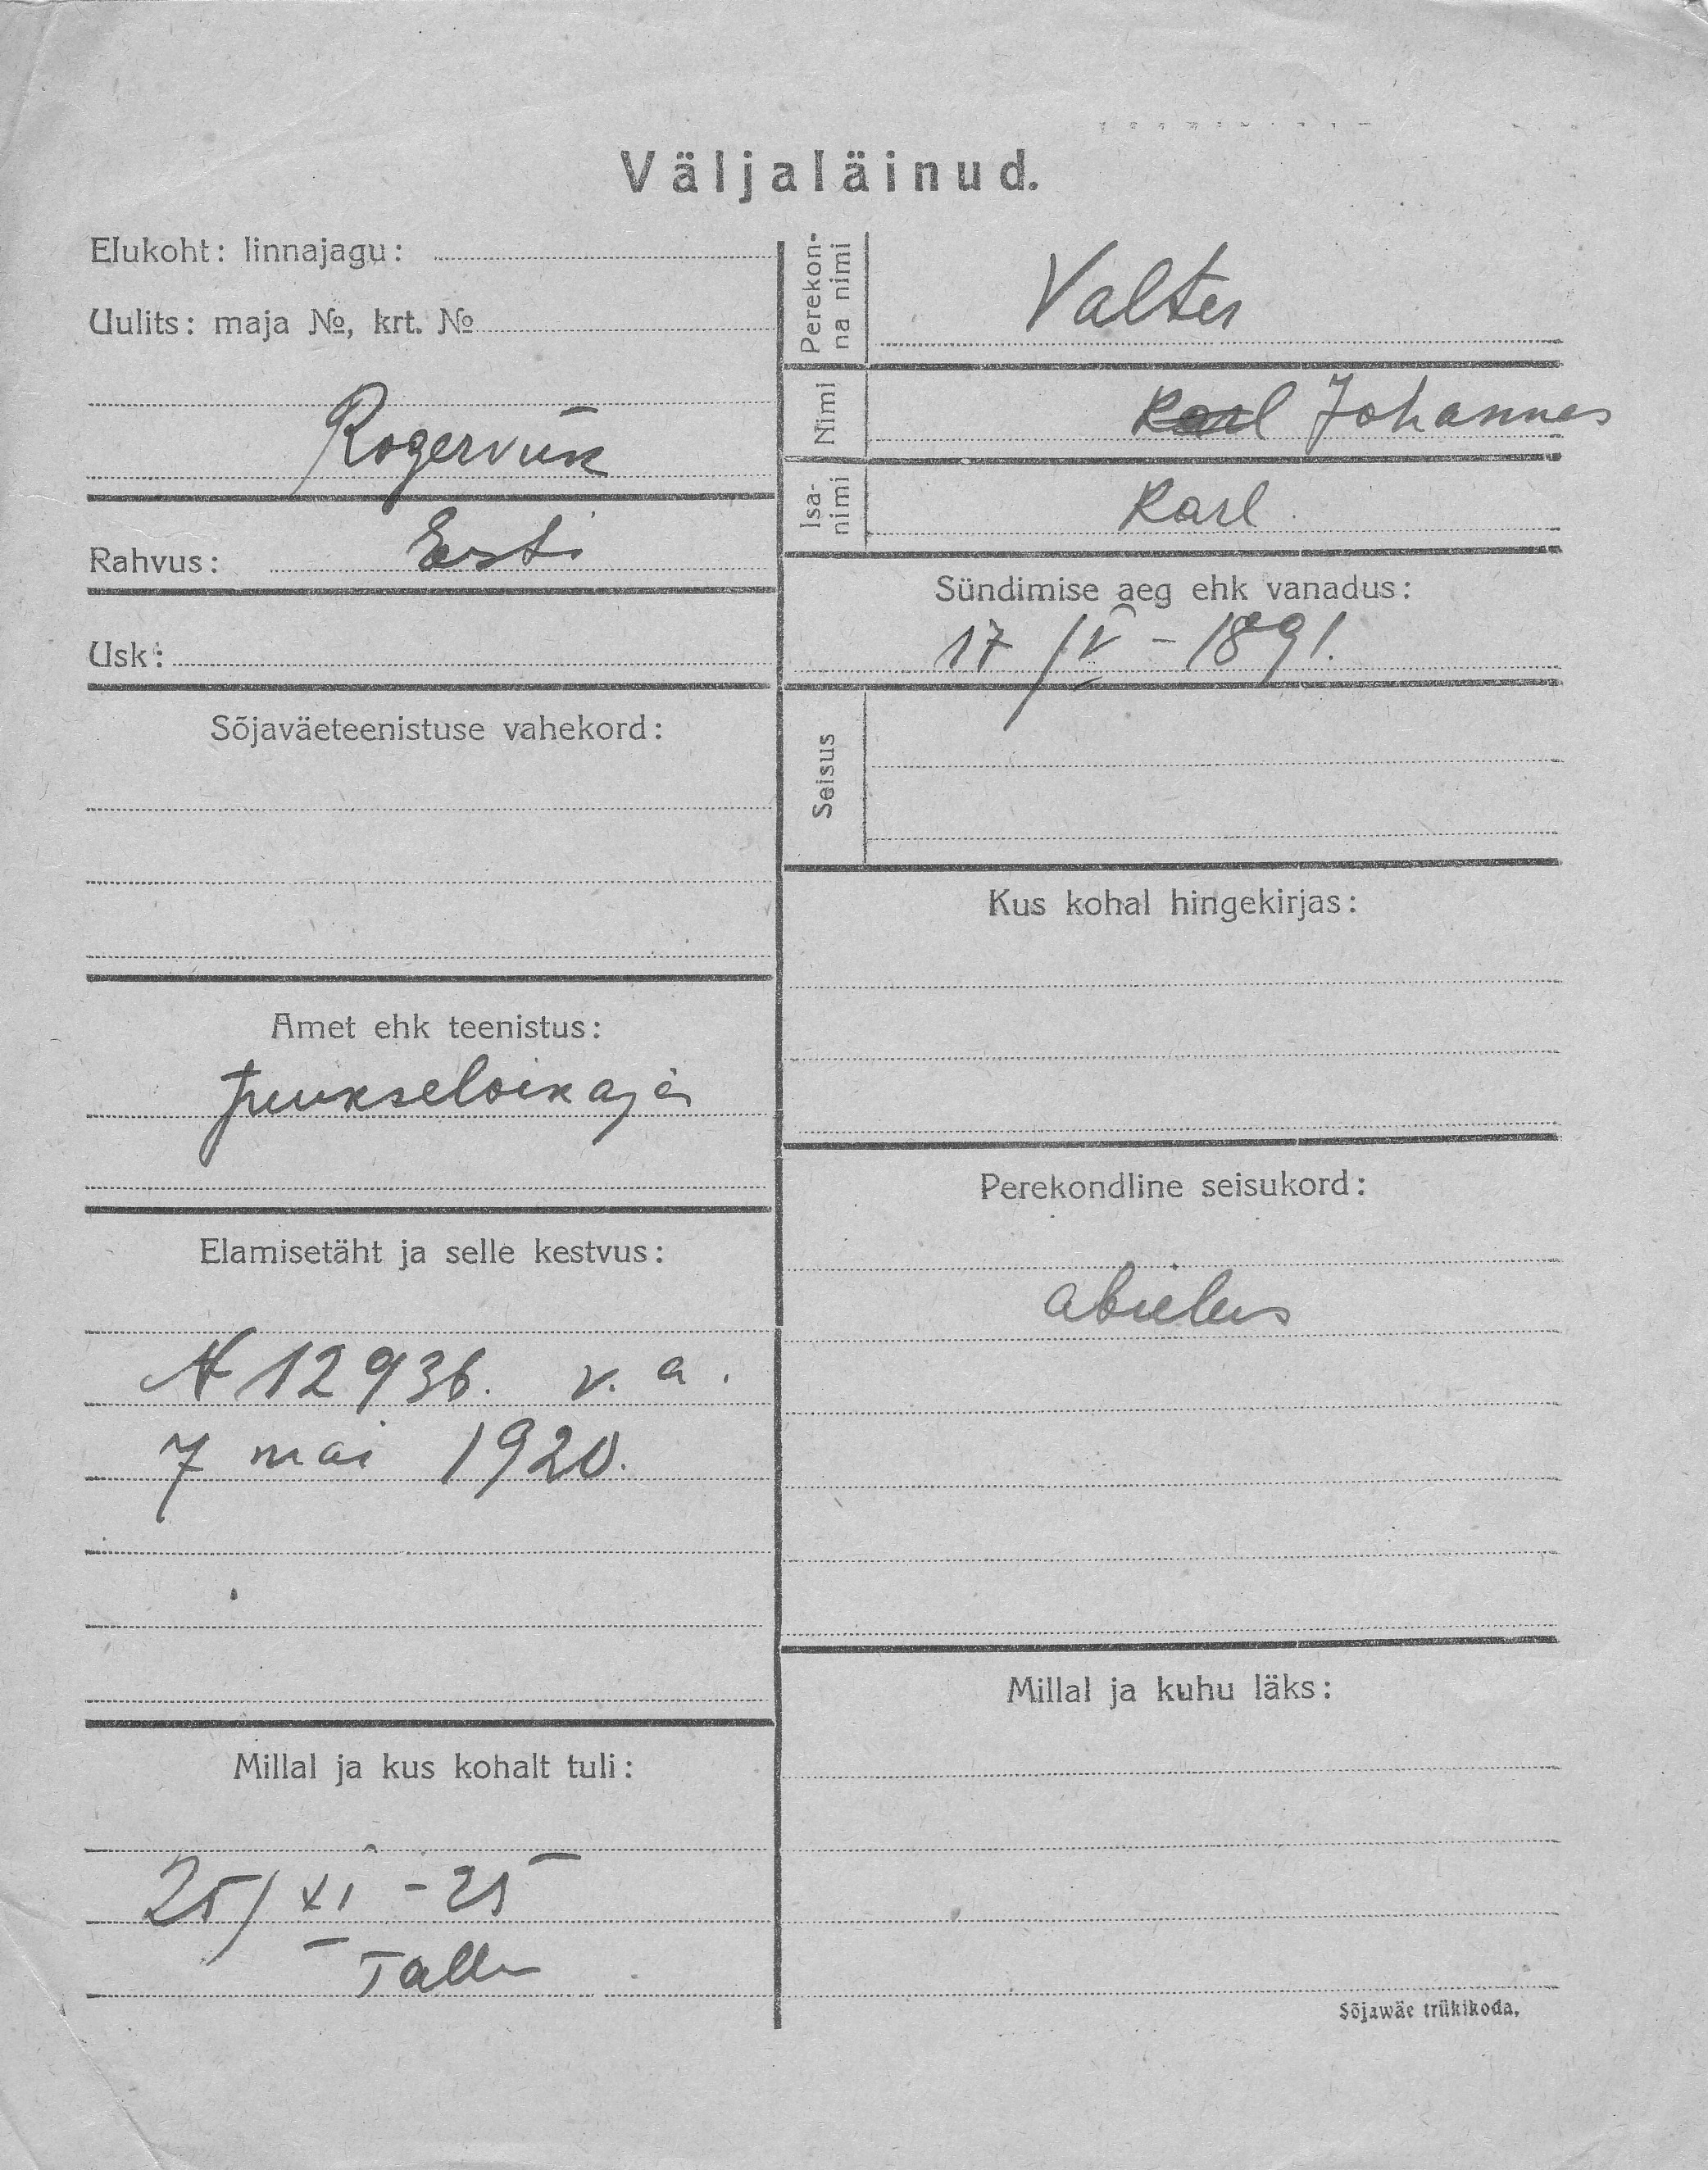 Väljaläinud.
Elukoht: linnajagu:
Uulits: maja №, krt. №
Rogerviik
Rahvus: Eesti
Usk:
Sõjaväeteenistuse vahekord:
Amet ehk teenistus:
Juukseloikaja
Elamisetäht ja selle kestvus:
N 12936. v. a.
7 mai 1920.
Millal ja kus kohalt tuli:
25/XI - 25
Talln
Perekon-
na nimi
Valter
Nimi
Karl Johannes
Isa-
nimi
Karl
Sündimise aeg ehk vanadus:
17/V - 1891.
Seisus
Kus kohal hingekirjas:
Perekondline seisukord:
abielus
Millal ja kuhu läks:
Sõjawäe trükikoda.